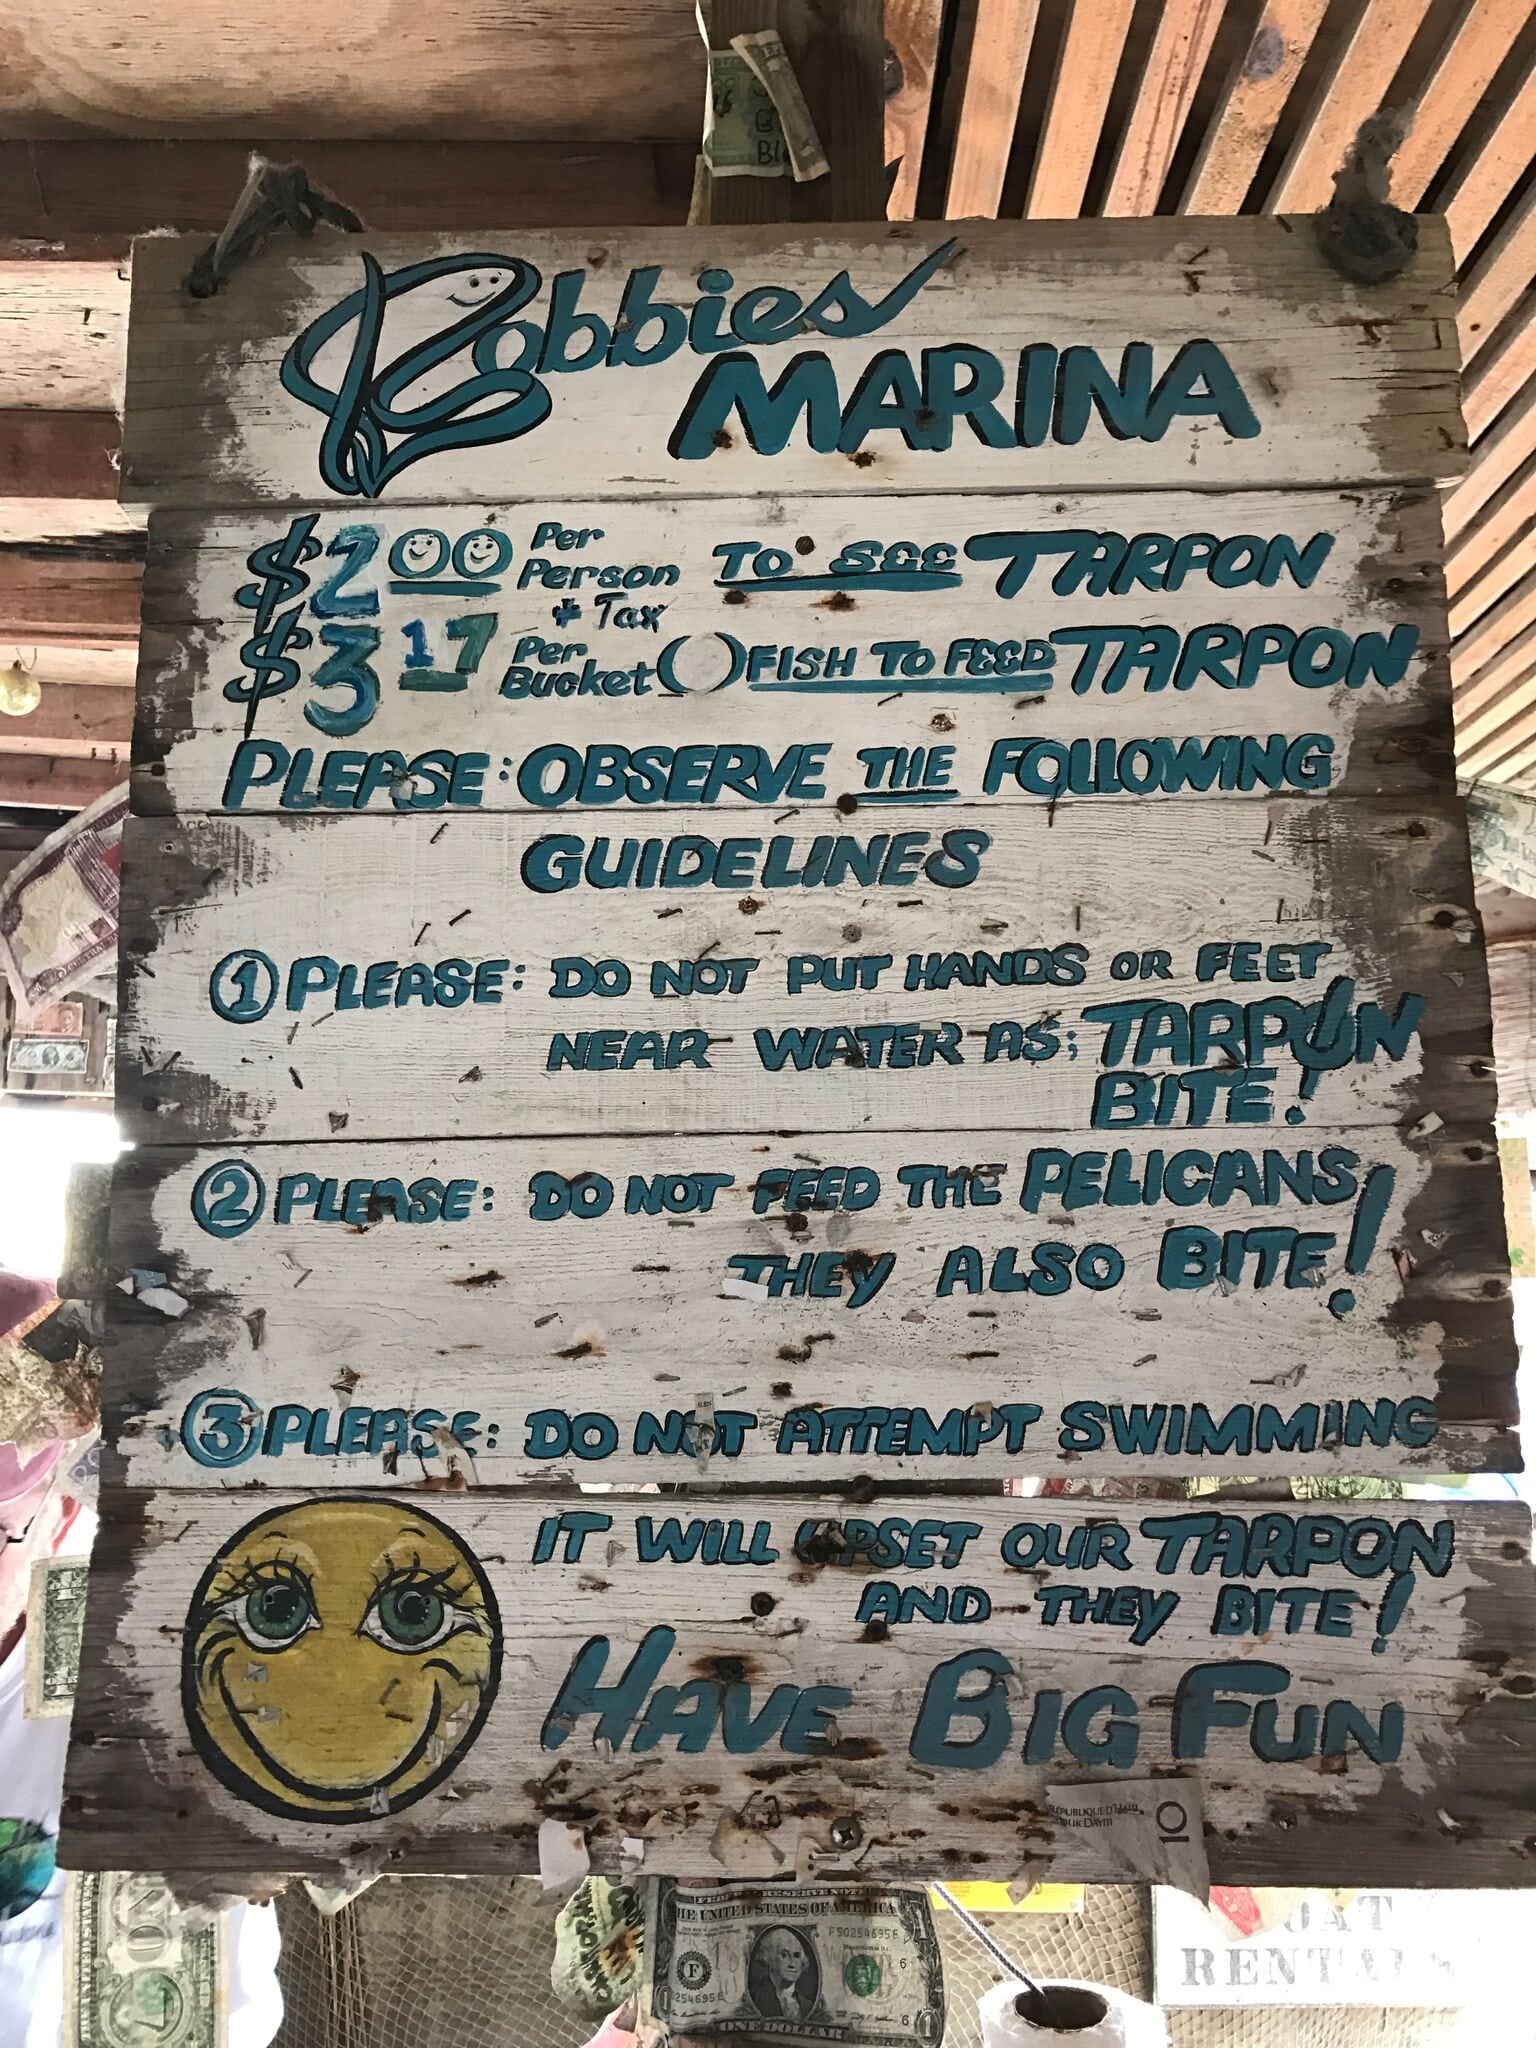 Robbies
MARINA
$2.00 Per Person + Tax TO SEE TARPON
$3.17 Per Bucket ( ) FISH TO FEED TARPON
PLEASE: OBSERVE THE FOLLOWING
GUIDELINES
1 PLEASE: DO NOT PUT HANDS OR FEET
NEAR WATER AS; TARPON
BITE!
2 PLEASE: DO NOT FEED THE PELICANS
THEY ALSO BITE!
3 PLEASE: DO NOT ATTEMPT SWIMMING
IT WILL UPSET OUR TARPON
AND THEY BITE!
HAVE BIG FUN
RÉPUBLIQUE D'HAÏTI
10
FEDERAL RESERVE NOTE
THE UNITED STATES OF AMERICA
F 50254695 E
F
6
ONE DOLLAR
1
ONE
OAT
RENTALS